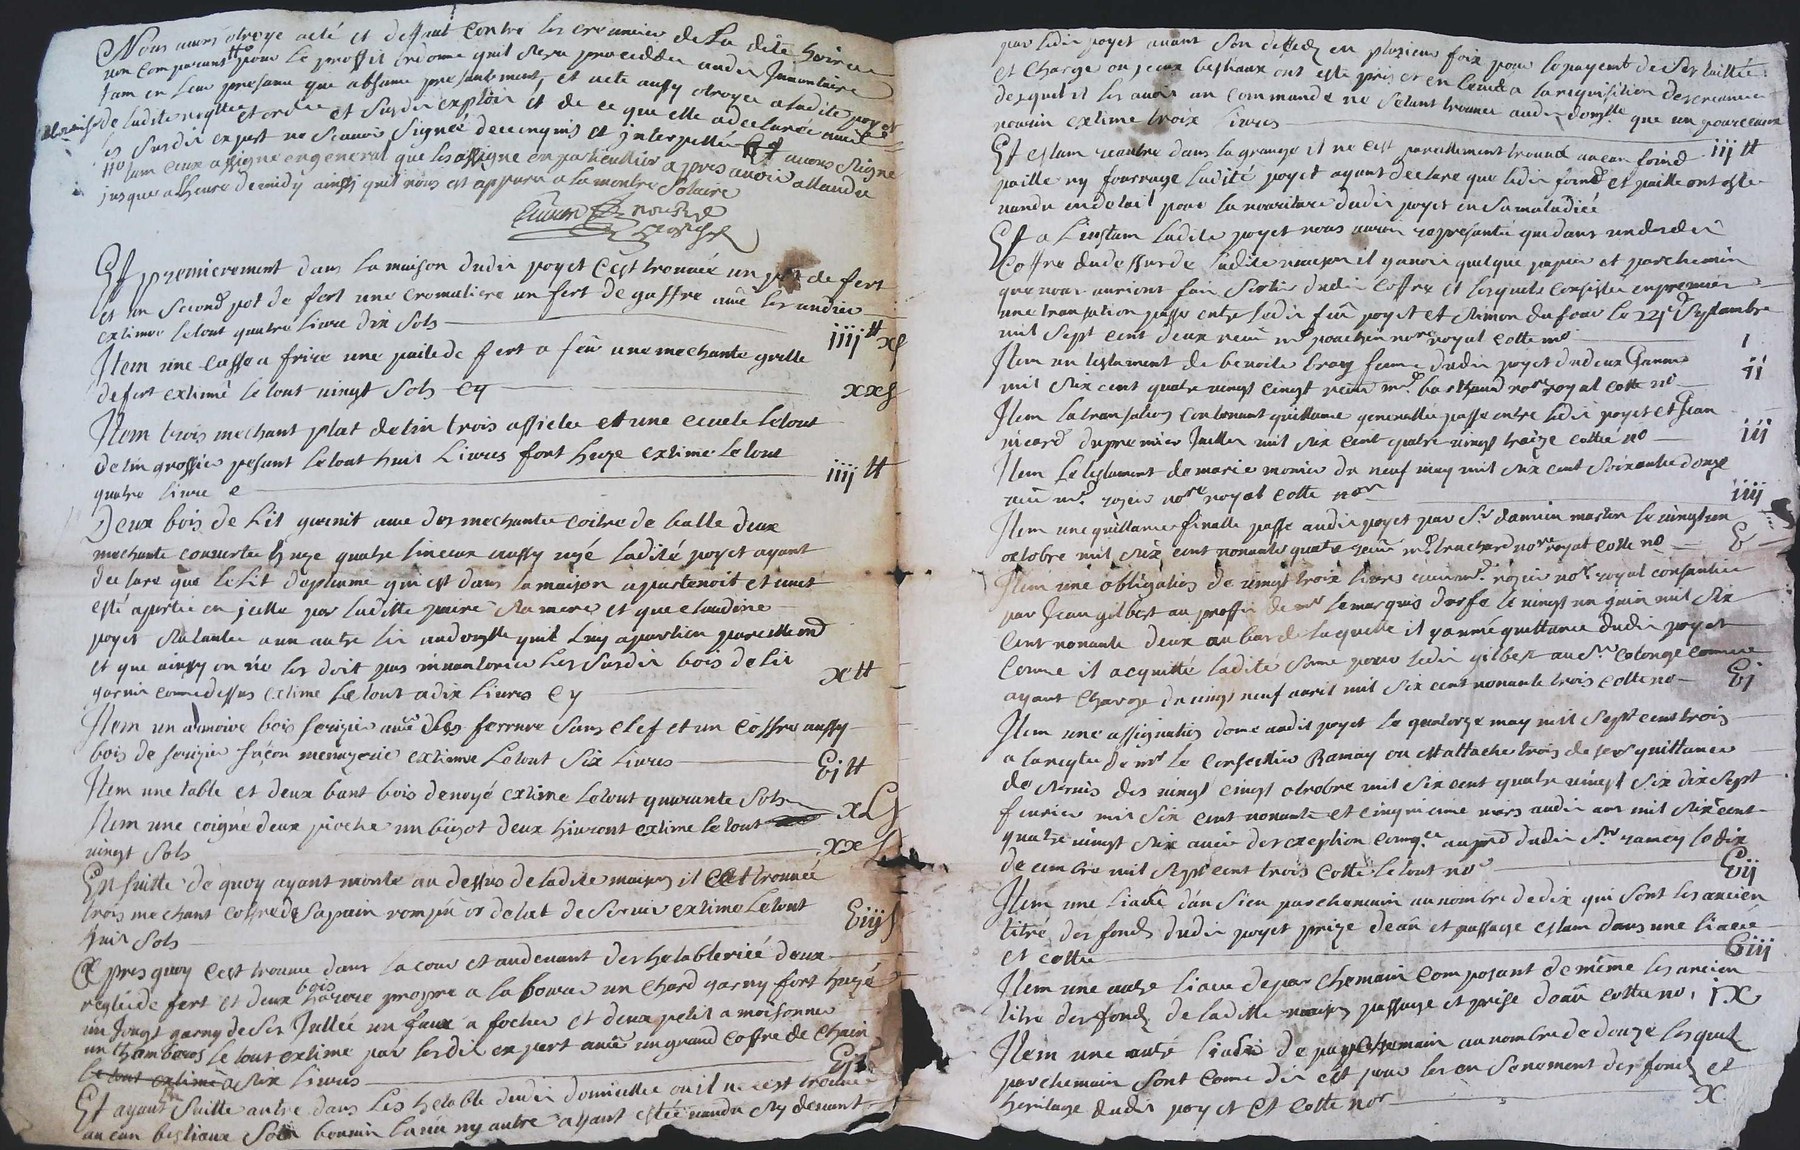 Nous avons otroye acte et deffaut contre les creancier de La dite hoirie
non comparant pour Le proffit ordonne quil sera proceddee audit Inventaire
tam en Leur presance que absance presantement, et acte aussy otroyee a ladite poyet
de ladite requete et ordre et susdit exploit et de ce que elle a declaree avec
es susdit expert ne scavoir signée de ce enquis et interpellée avons signe
tam ceux assigne en general que les assigne en particullier apres avoir attandu
jusque a lheure de midy ainsy quil nous est apparu a la montre solaire
Et premierement dans la maison dudit poyet cest trouvée un pot de fert
et un second pot de fert une cromaliere un fert de gaffre avec les andier
extimee le tout quatre livre dix sols iiij tt x s
Item une casse a frire une paile de fert a feu une mechante grille
de fert extimé le tout vingt sols cy xx s
Item trois mechant plat detin trois assiete et une ecuele le tout
detin grossier pesant le tout huit Livres fort huze extime le tout
quatre livre c iiij tt
Deux bois de Lit garnit avec des mechante coitre de balle deux
mechante couverte huze quatre linceux aussy uzé ladite poyet ayant
declare que le Lit de plume qui est dans la maison apartenoit et avoit
esté aportée en icelle par laditte mere et que claudine
poyet sa tante a un autre lit audomille quil Luy apartien pareillemend
et que ainsy on ne les doit pas invantorier Les susdit bois de lit
garnir comme dessus extime le tout a dix Livres cy x tt
Item un armoire bois serizier avec des ferrure sans clef et un coffre aussy
bois de serizier façon menuzerie extime Le tout six Livres vj tt
Item une table et deux bant bois de noyé extime Le tout quarante sols xL s
Item une coigné deux pioche un bigot deux extime le tout
vingt sols xx s
En suitte de quoy ayant monté au dessus de ladite maison il cest trouvée
trois mechant coffre de sapain rompeu or detat de servir extime Le tout
huit sols viij s
Apres quoy cest trouvee dans la cour et audevant des hetableriée deux
de fert et deux bois proppre a la un chard garny fort huzé
un Jougt garny de ses Jullée un faux a focher et deux petit a moisonner
un le tout extime par lesdit expert avec un grand coffre de chain
le tout extimé a six Livres vj tt
Et ayant En suitte antre dans Les hetable dudit domicillee ou il ne cest trouvee
aucun bestiaux soit bouvin Lanu ny autre ayant esté vandu cy devant
par ledit poyet avant son deced en plusieur foix pour le payement de ses taille
et charge ou iceux bestiaux ont esté pris et en Leve a la requisition des creancier
desquel il les avoit an commande ne setant trouvee audit domylle que un pourceaux
nourin extime troix Livres iij tt
Et estam rantre dans la grange il ne cest pareillement trouvee aucun foind
paille ny fourrage Ladite poyet ayant declare que ledit foind et paille ont este
vandu en detail pour la nourriture dudit poyet en sa maladiee
Et a Linstam Ladite poyet nous auroit represantee que dans un desdit
Coffre du dessus de Ladite maison il y avoit quelque papier et parchemin
que nous aurions fait sortir dudit coffre et lesquels consiste en premier
une transation passe entre ledit feu poyet et Simon dufour Le 22e Septambre
mil sept cent deux receu me ponchon nore royal cotte no 1
Item un testament de benoite bray feme dudit poyet du deux Janvier
mil six cent quatre vingt cingt receu me barthaud nore royal cotte no ii
Item La transation contenant quittance generalle passe entre Ledit poyet et Jean
nicard du premier Juillet mil six cent quatre vingt traize cotte no iii
Item Le testament de marie monier du neuf may mil six cent soixante douze
receu me rozier nore royal cotte no iiij
Item une quittance finalle passe audit poyet par Sr damien martin le vingt un
octobre mil six cent nonante quatre receu me nore royal cotte no v
Item une obligation de vingt troix livres receu me rozier nore royal consantie
par Jean gilbert au proffit de mr Le marquis durfe le vingt un juin mil six
cent nonante deux au bas de laquelle il y a une quittance dudit poyet
comme il acquitté ladite some pour ledit gilbert au Sr colonge comme
ayant charge du vingt neuf avril mil six cent nonante trois cotte no vj
Item une assignation donne audit poyet Le quatorze may mil sept cent trois
a la requete de mr Le conseillier Ramay ou est attache trois de ses quittance
de servis des vingt cingt octobre mil six cent quatre vingt six dix sept
fevrier mil six cent nonante et cinquieme mars audit an mil six cent
quatre vingt six avec des exeption aupred dudit Sr ramey le dix
decembre mil sept cent trois cotte le tout no vij
Item une Liace dansien parchemain au nombre de dix qui sont les ancien
titre des fonds dudit poyet prize deau et passage estam dans une liace
et cotte viij
Item une autre liace de parchemain composant de même les ancien
titre des fonds de laditte maison passage et prise deau cotte no ix
Item une autre liace de parchemain au nombre de douze lesquel
parchemain sont come dit est pour les en senoment des fonds et
heritage dudit poyet et cotte nor x